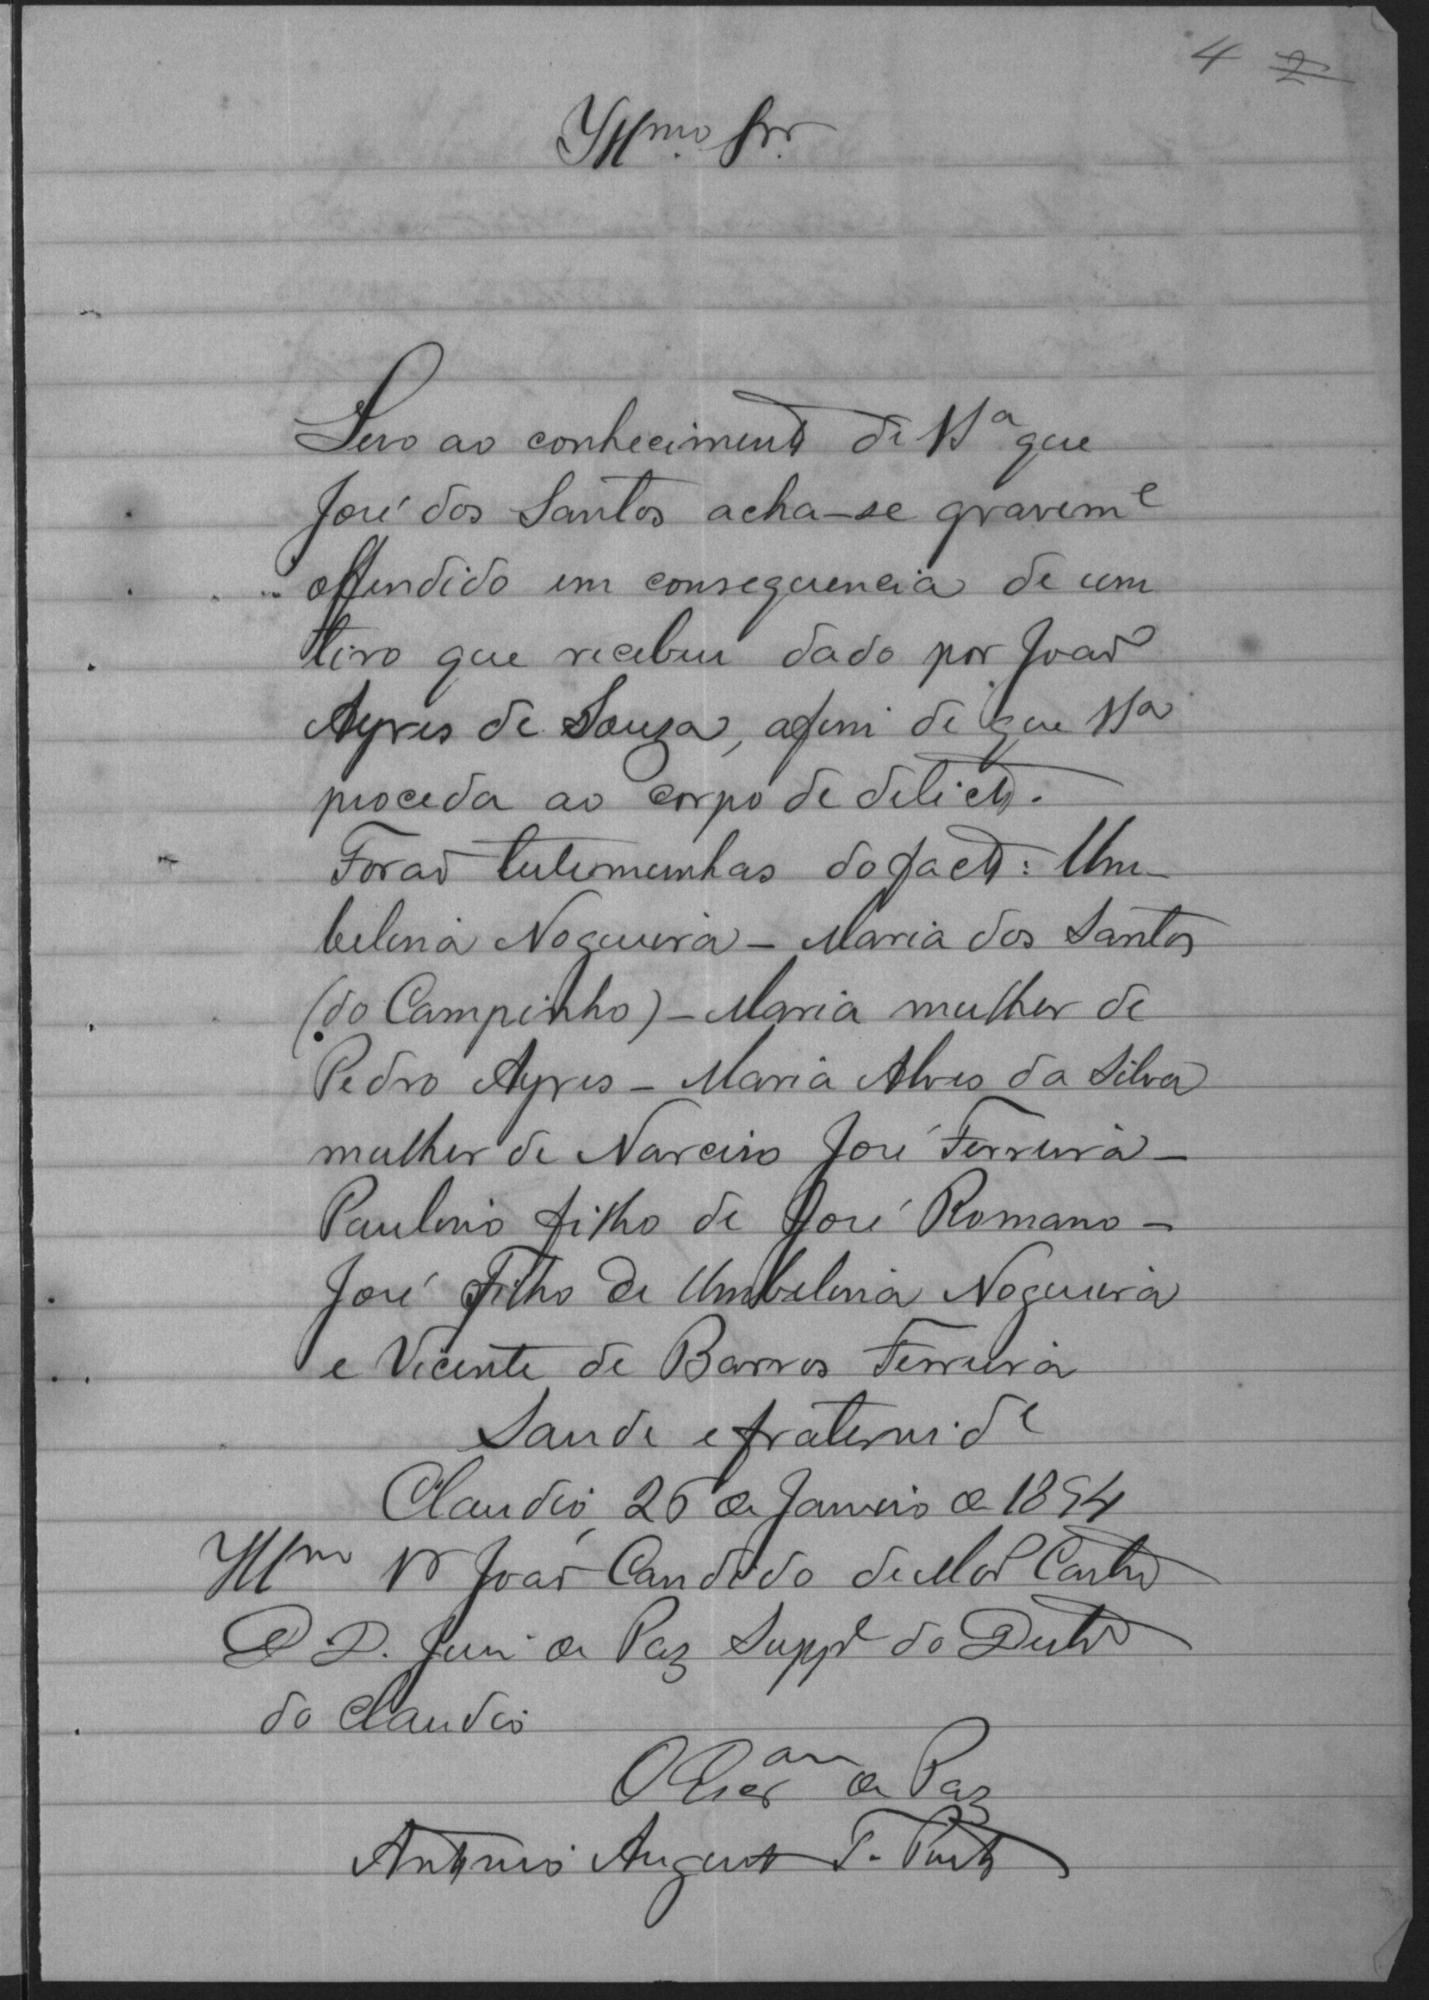 4 2
Illmo. Snr.
Levo ao conhecimento de VSa que
José dos Santos acha-se graveme
offendido em consequencia de um
tiro que recebeu dado por João
Ayres de Souza, afim de que VSa
proceda ao corpo de delicto.
Forão testemunhas do facto: Um-
belina Nogueira - Maria dos Santos
(do Campinho) - Maria mulher de
Pedro Ayres - Maria Alves da Silva
mulher de Narciso José Ferreira -
Paulino filho de José Romano -
José Filho de Umbelina Nogueira
e Vicente de Barros Ferreira
Saude e fraternide
Claudio, 26 de Janeiro de 1894
Illmo Snr João Candido de Castro
D. D. Juiz de Paz Suppe do Desto
do Claudio
O Escam de Paz
Antonio Augusto P. Porto